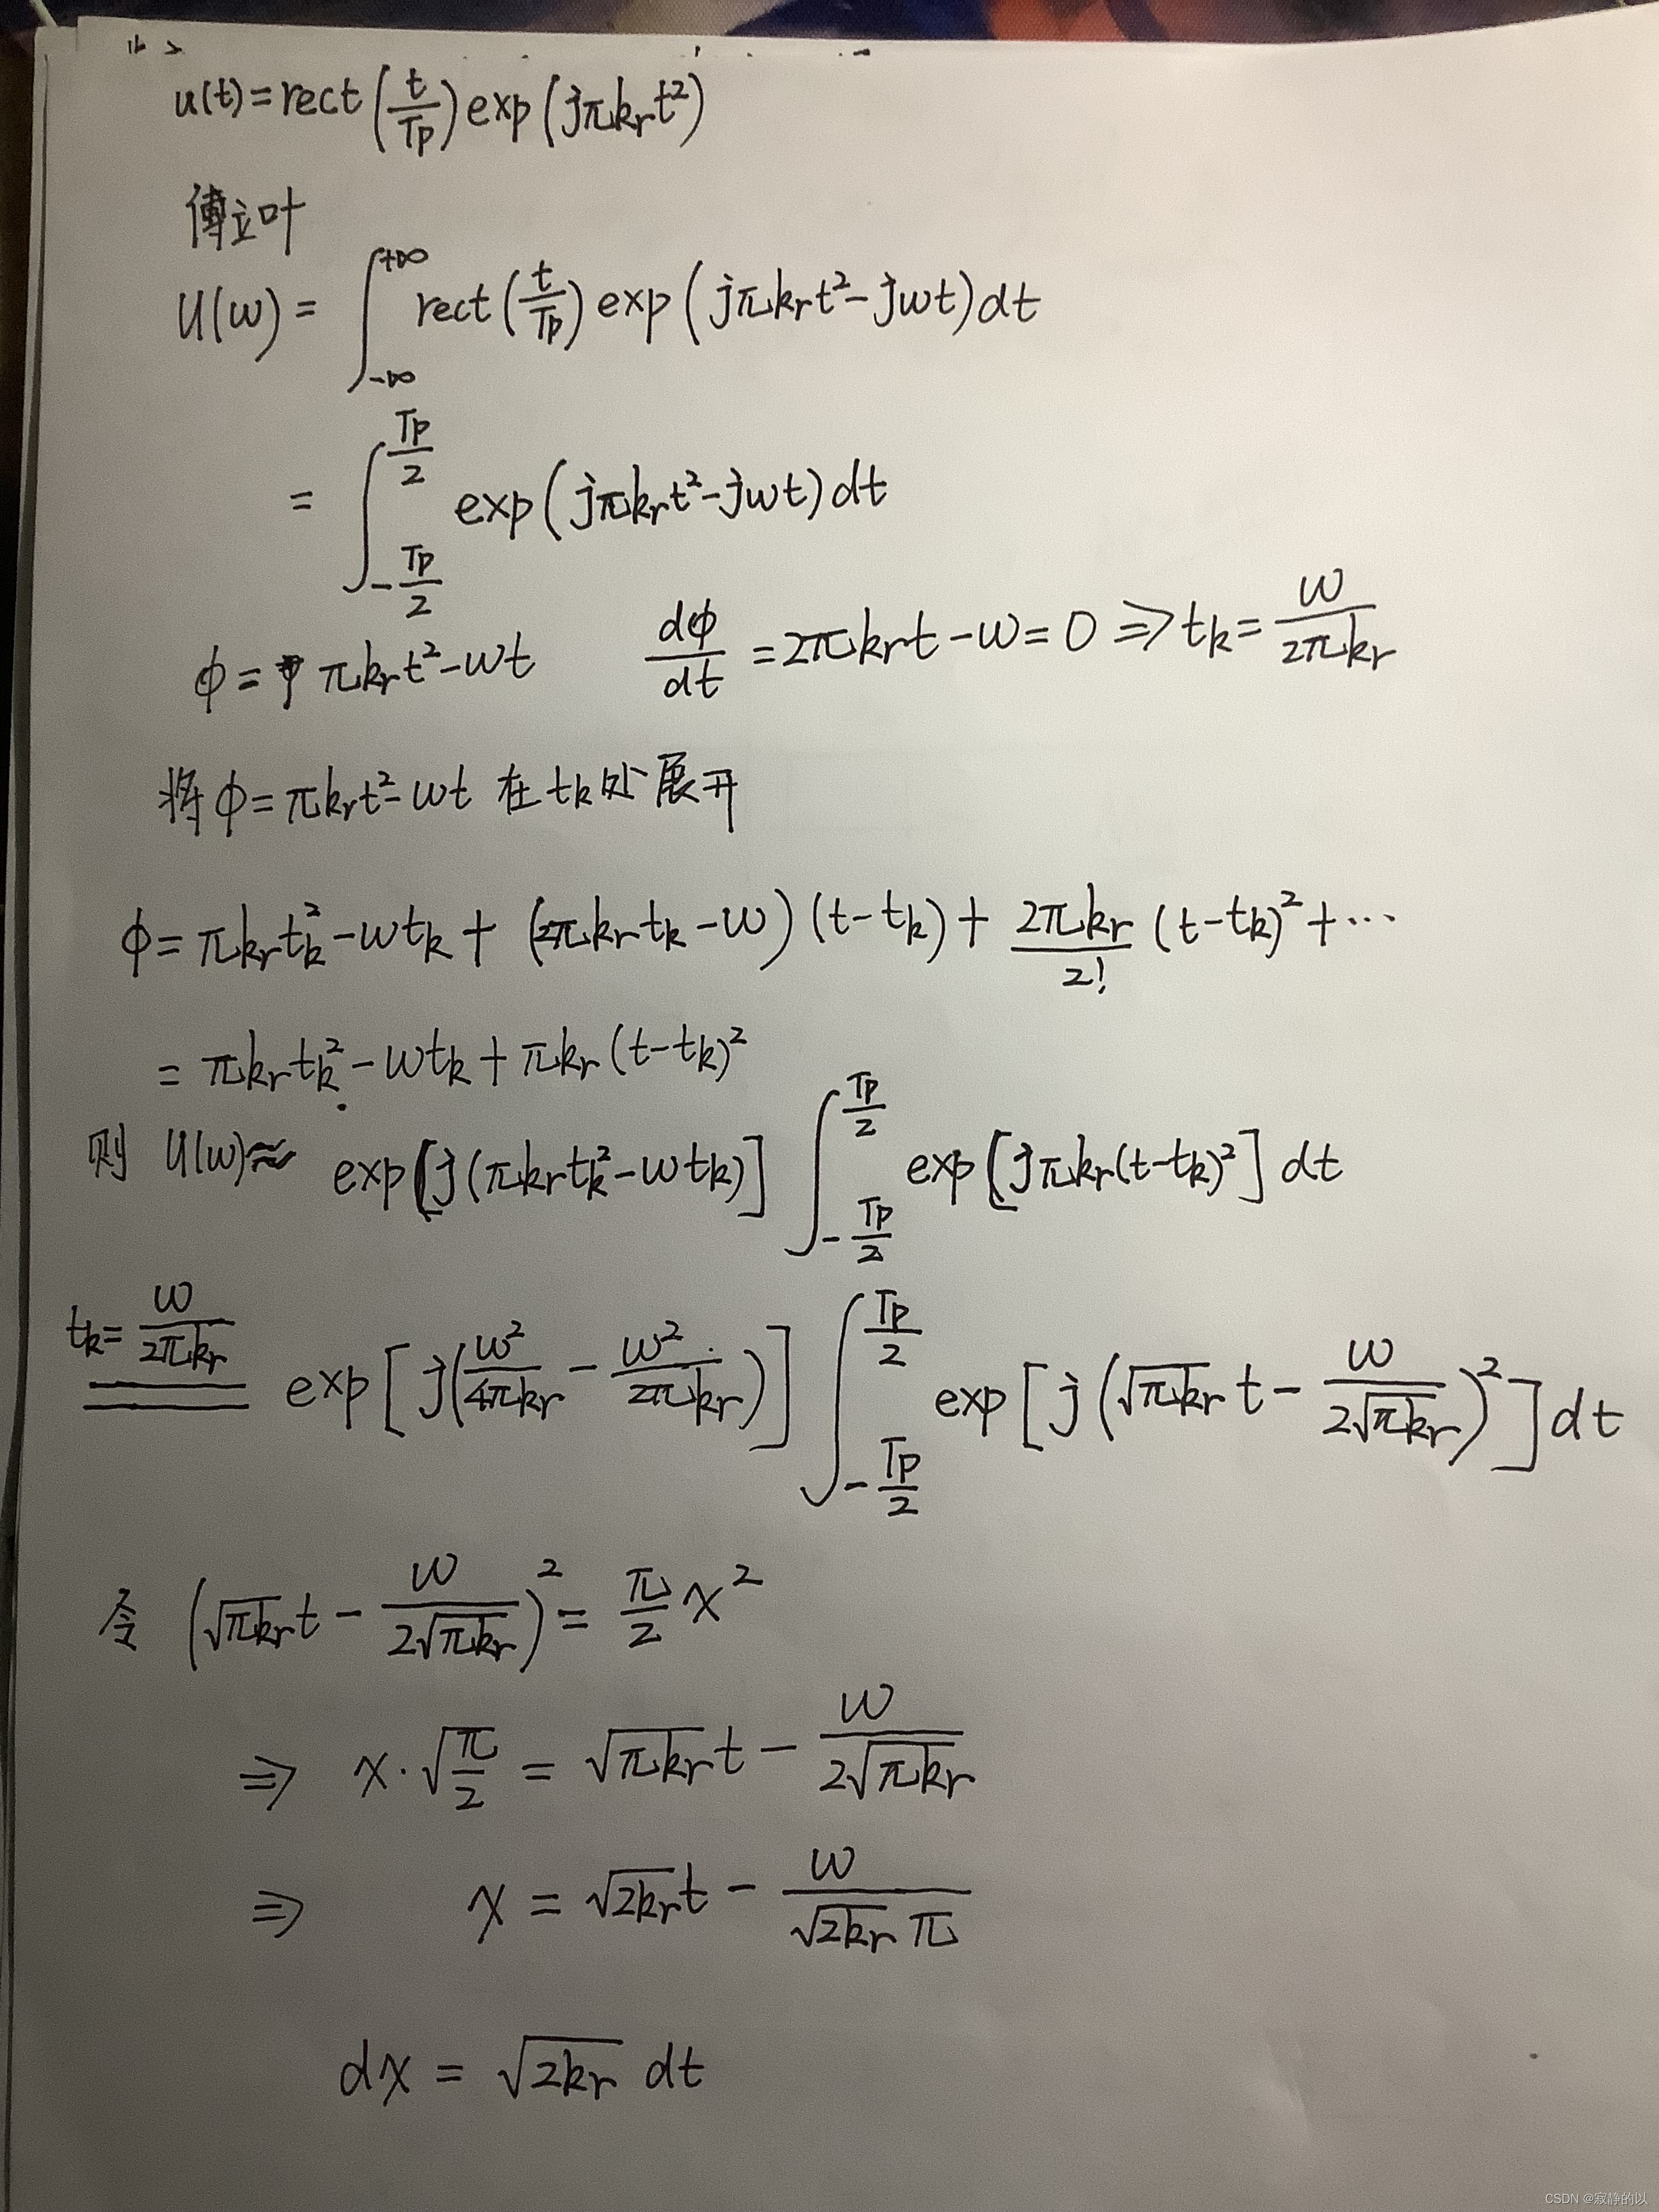 u(t)=rect(t/Tp)exp(jπkrt²)
傅立叶
U(w)=∫_{-∞}^{+∞} rect(t/Tp)exp(jπkrt²-jwt)dt
=∫_{-Tp/2}^{Tp/2} exp(jπkrt²-jwt)dt
ϕ=πkrt²-wt dϕ/dt=2πkrt-w=0⇒tk=w/2πkr
将ϕ=πkrt²-wt 在tk处展开
ϕ=πkrtk²-wtk+(2πkrtk-w)(t-tk)+2πkr/2!(t-tk)²+…
=πkrtk²-wtk+πkr(t-tk)²
则 U(w)≈exp[j(πkrtk²-wtk)]∫_{-Tp/2}^{Tp/2} exp[jπkr(t-tk)²]dt
tk=w/2πkr
exp[j(w²/4πkr-w²/2πkr)]∫_{-Tp/2}^{Tp/2} exp[j(√πkr t-w/2√πkr)²]dt
令 (√πkr t-w/2√πkr)²=π/2 x²
⇒ x·√π/2=√πkr t-w/2√πkr
⇒ x=√2kr t-w/√2kr π
dx=√2kr dt
CSDN @寂静的以